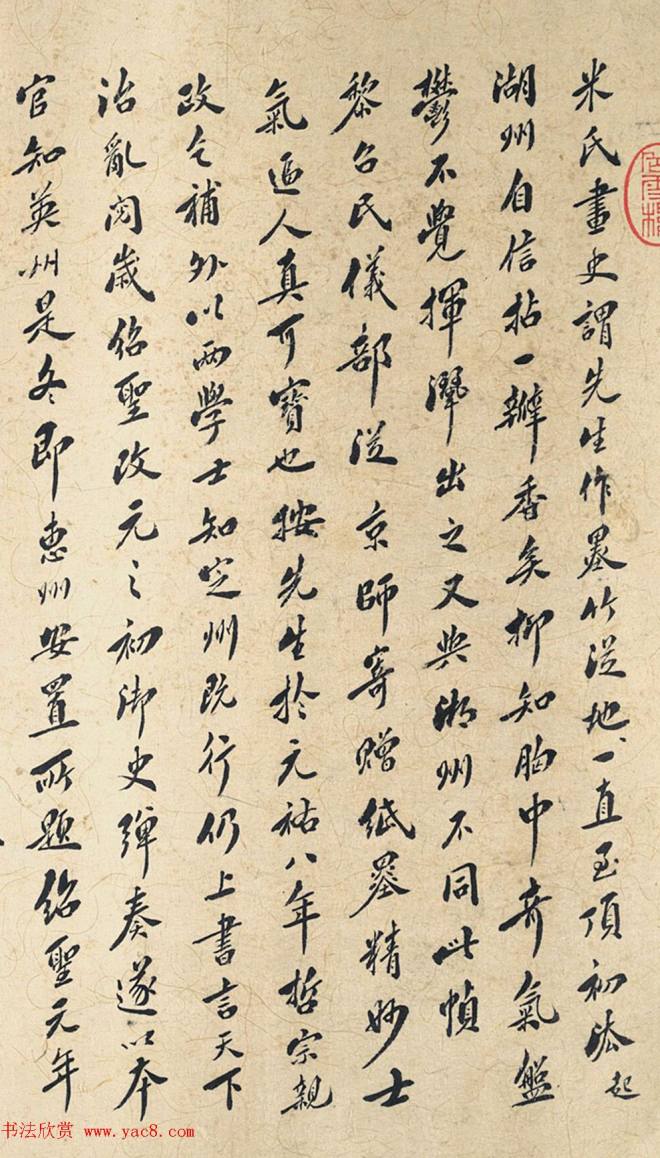 米氏畫史謂先生作墨竹從地一直至頂初法起
湖州自信拈一瓣香矣抑知胸中奇氣盤
鬱不覺揮灑出之又與湖州不同此幀
黎召民儀部從京師寄贈紙墨精妙士
氣逼人真可寶也按先生於元祐八年哲宗親
政乞補外以兩學士知定州既行仍上書言天下
治亂閱歲紹聖改元之初御史彈奏遂以本
官知英州是冬即惠州安置所題紹聖元年
书法欣赏 www.yac8.com